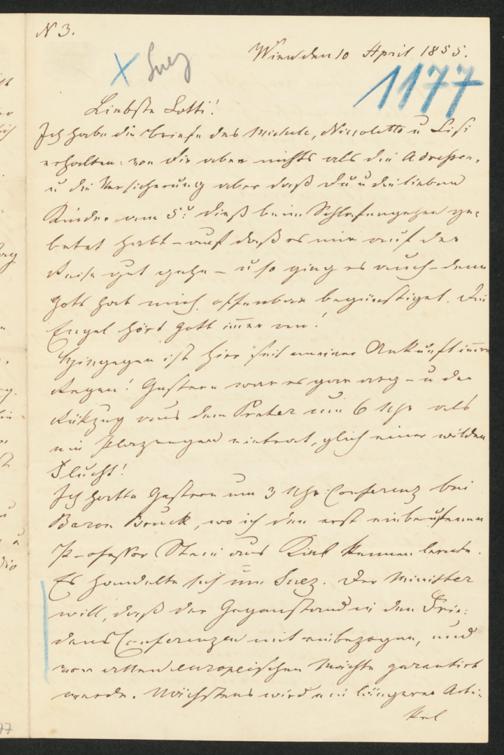 N 3.
Wien den 10 April 1855.
X Suez
1177
Liebste Lotti!
Ich habe die Briefe des Michele, Nicoletto u Lisi
erhalten: von Dir aber nichts als die Adresse,
u die Versicherung aber daß Du u die lieben
Kinder am 5t dieß beim Schlafengehen ge-
betet habt – auf daß es mir auf der
Reise gut gehe – u so ging es auch – denn
Gott hat mich offenbar begünstiget. Die
Engel hört Gott immer an!
Hingegen ist hier seit meiner Ankunft immer
Regen! Gestern war es gar arg – u der
Rükzug aus dem Prater um 6 Uhr als
ein Platzregen eintrat, glich einer wilden
Flucht!
Ich hatte Gestern um 3 Uhr Conferenz bei
Baron Bruck, wo ich den erst einberufenen
Professor Stein aus Kiel kennen lernte.
Es handelte sich um Suez. Der Minister
will, daß der Gegenstand in den Frie-
dens Conferenzen mit einbezogen, und
von allen europeischen Mächte garantirt
werde. Nächstens wird ein längerer Arti-
kel